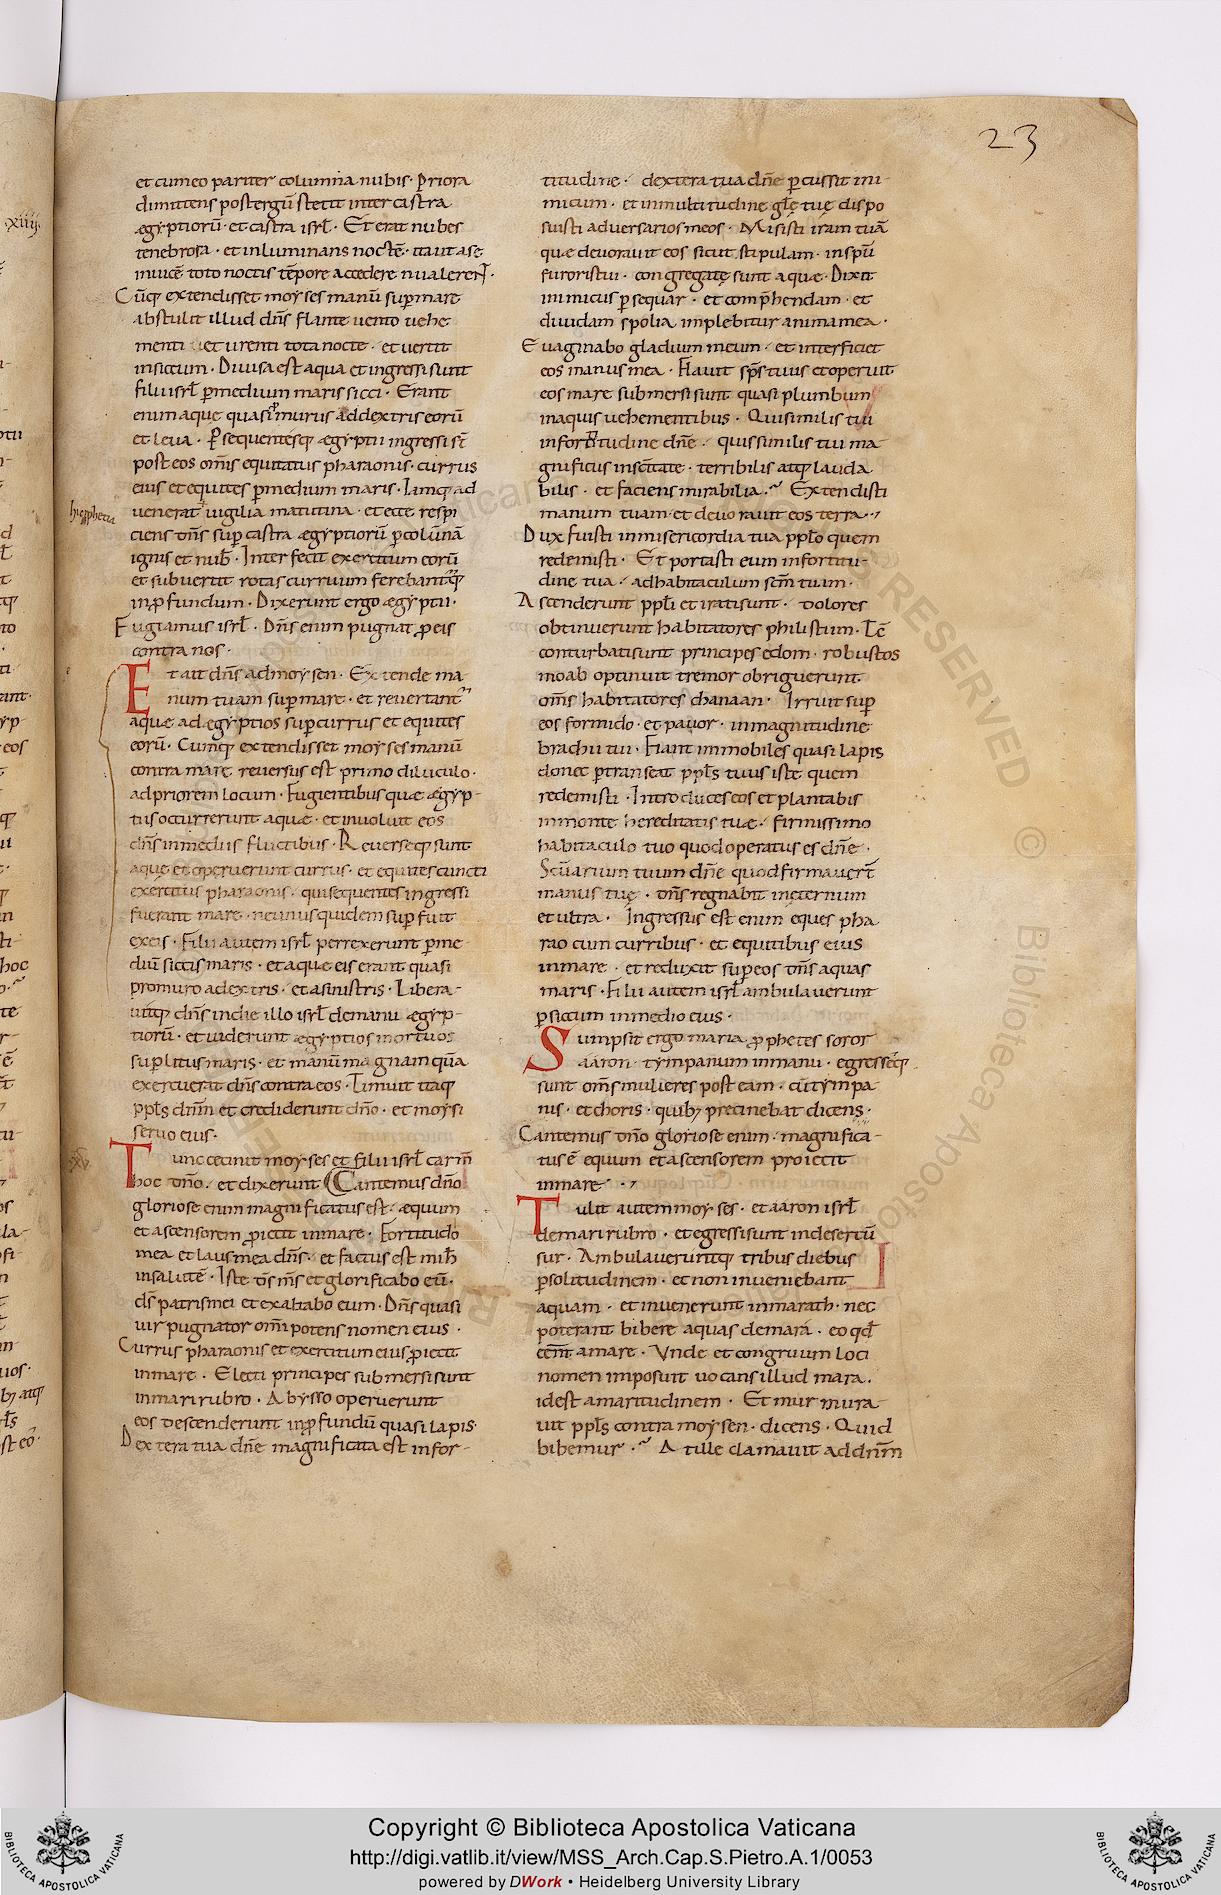 23
et cum eo pariter columna nubis · Priora
dimittens postergū stetit inter castra
ægyptiorū · et castra isrł · Et erat nubes
tenebrosa · et inluminans noctē · ita ut a se
inuicē toto noctis tēpore accedere nualerent ·
Cūq extendisset moyses manū sup mare
abstulit illud dñs flante uento uehe
menti et urenti tota nocte · et uertit
insiccum · Diuisa est aqua et ingressi sunt
filii isrł p medium maris sicci · Erant
enim aque quasi murus addextris eorū
et leua · Psequentesq ægyptii ingressi st̄
post eos om̄is equitatus pharaonis · currus
eius et equites p medium maris · Iamq ad
uenerat uigilia matutina · et ecce respi
hieppheta
ciens dñs sup castra ægyptiorū p colūnā
ignis et nub · Interfecit exercitum eorū
et subuertit rotas curruum ferebantq
inpfundum · Dixerunt ergo ægyptii ·
Fugiamus isrł · Dñs enim pugnat p eis
contra nos ·
Et ait dñs admoysen · Extende ma
num tuam sup mare · et reuertant
aquæ ad ægyptios sup currus et equites
eorū · Cumq extendisset moyses manū
contra mare reuersus est primo diluculo ·
adpriorem locum · Fugientibusquæ ægyp
tus occurrerunt aquæ · et inuoluit eos
dñs inmediis fluctibus · Reuerseq sunt
aquæ et operuerunt currus · et equites cuncti
exercitus pharaonis · qui sequentes ingressi
fuerant mare · ne unus quidem supfuit
exeis · Filii autem isrł perrexerunt p me
diū sicci maris · et aquæ eis erant quasi
promuro adextris · et asinistris · Libera-
uitq dñs indie illo isrł demanu ægyp-
tiorū · et uiderunt ægyptios mortuos
sup litus maris · et manū magnam quā
exercuerat dñs contra eos · Timuit itaq
ppłs dñm et crediderunt dño · et moysi
seruo eius ·
Tunc cecinit moyses et filii isrł carm̄
hoc dño · et dixerunt Cantemus dño
gloriose enim magnificatus est · æquum
et ascensorem piecit inmare · Fortitudo
mea et laus mea dñs · et factus est mihi
insalutē · Iste ds ms et glorificabo eū ·
ds patris mei et exaltabo eum · Dñs quasi
uir pugnator om̄ipotens nomen eius ·
Currus pharaonis et exercitum eius piecit
inmare · Electi principes submersi sunt
inmari rubro · Abysso operuerunt
eos descenderunt inpfundū quasi lapis ·
Dextera tua dñe magnificata est infor-
titudine · dextera tua dñe pcussit ini-
micum · et inmultitudine głę tuę dispo
suisti aduersarios meos · Misisti iram tuā
quæ deuorauit eos sicut stipulam · inspū
furoris tui · congregatę sunt aquæ · Dixit
inimicus psequar · et comphendam · et
diuidam spolia implebitur anima mea ·
Euaginabo gladium meum · et interficiet
eos manus mea · Flauit sps tuus et operuit
eos mare submersi sunt quasi plumbum
inaquis uehementibus · Quis similis tui
infortitudine dñe · quis similis tui ma
gnificus inscitate · terribilis atq lauda
bilis · et faciens mirabilia · Extendisti
manum tuam · et deuorauit eos terra ·
Dux fuisti inmisericordia tua pplo quem
redemisti · Et portasti eum infortitu-
dine tua · adhabitaculum scm̄ tuum ·
Ascenderunt ppłi et irati sunt · dolores
obtinuerunt habitatores philistum · Tc̄
conturbati sunt principes edom · robustos
moab optinuit tremor obriguerunt
om̄s habitatores chanaan · Irruit sup
eos formido · et pauor · inmagnitudine
brachii tui · Fiant immobiles quasi lapis
donec ptranseat ppłs tuus iste quem
redemisti · Introduces eos et plantabis
inmonte hereditatis tuæ · firmissimo
habitaculo tuo quod operatus es dñe ·
Scūarium tuum dñe quod firmauert̄
manus tuę · dñs regnabit inęternum
et ultra · Ingressus est enim eques pha
rao cum curribus · et equitibus eius
inmare · et reduxit sup eos dñs aquas
maris · Filii autem isrł ambulauerunt
p siccum inmedio eius ·
Sumpsit ergo maria pphetes soror
aaron · tympanum inmanu · egresseq
sunt om̄s mulieres post eam · cū tympa
nis · et choris · quib; precinebat dicens ·
Cantemus dño gloriose enim · magnifica-
tus ē equum et ascensorem proiecit
inmare ·
Tulit autem moyses · et aaron isrł
demari rubro · et egressi sunt indesertū
sur · Ambulaueruntq tribus diebus
p solitudinem · et non inueniebant
aquam · et inuenerunt inmarath · nec
poterant bibere aquas demara · eo qd
eent̄ amare · Vnde et congruum loci
nomen imposuit uocans illud mara ·
idest amaritudinem · Et murmura
uit ppłs contra moysen · dicens · Quid
bibemus · At ille clamauit ad dñm
Copyright © Biblioteca Apostolica Vaticana
http://digi.vatlib.it/view/MSS_Arch.Cap.S.Pietro.A.1/0053
powered by DWork • Heidelberg University Library